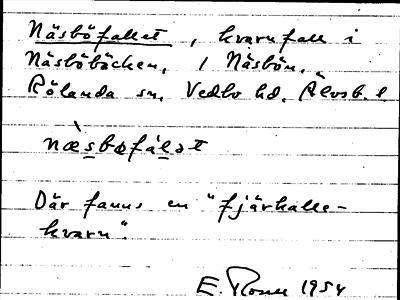 Näsböfallet, kvarnfall i
Näsböbäcken, i Näsbön,
Rölanda sn. Vedbo hd. Älvsb. l.
næsbøfálət
Där fanns en "fjärkalle-
kvarn".
E. 1954